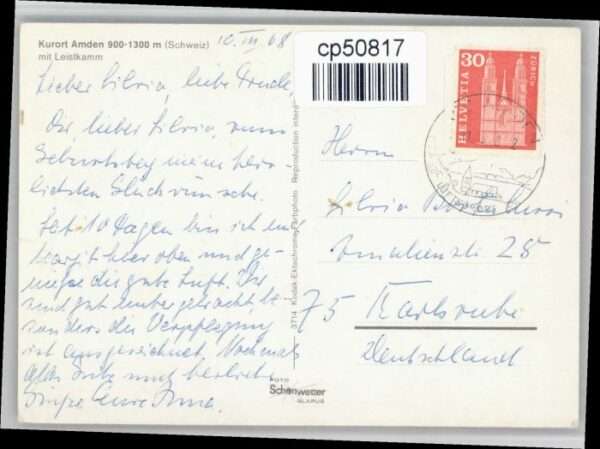 Kurort Amden 900-1300 m (Schweiz)
mit Leistkamm
10. III 68
cp50817
30
HELVETIA
ZÜRICH
Lieber Silvio, liebe Trude,
Dir, lieber Silvio, zum
Geburtstag meine herz
lichsten Glückwünsche.
Seit 10 Tagen bin ich
hier oben und ge-
niesse die gute Luft. Wir
sind gut untergebracht, be-
sonders die Verpflegung
ist ausgezeichnet. Nochmals
alles Gute und herzliche
Grüsse Eure Anna.
3714 Kodak-Ektachrome-Farbphoto Reproduction interd
FOTO
Schönwetter
GLARUS
Herrn
Silvio
Amalienstr 25
75 Karlsruhe
Deutschland